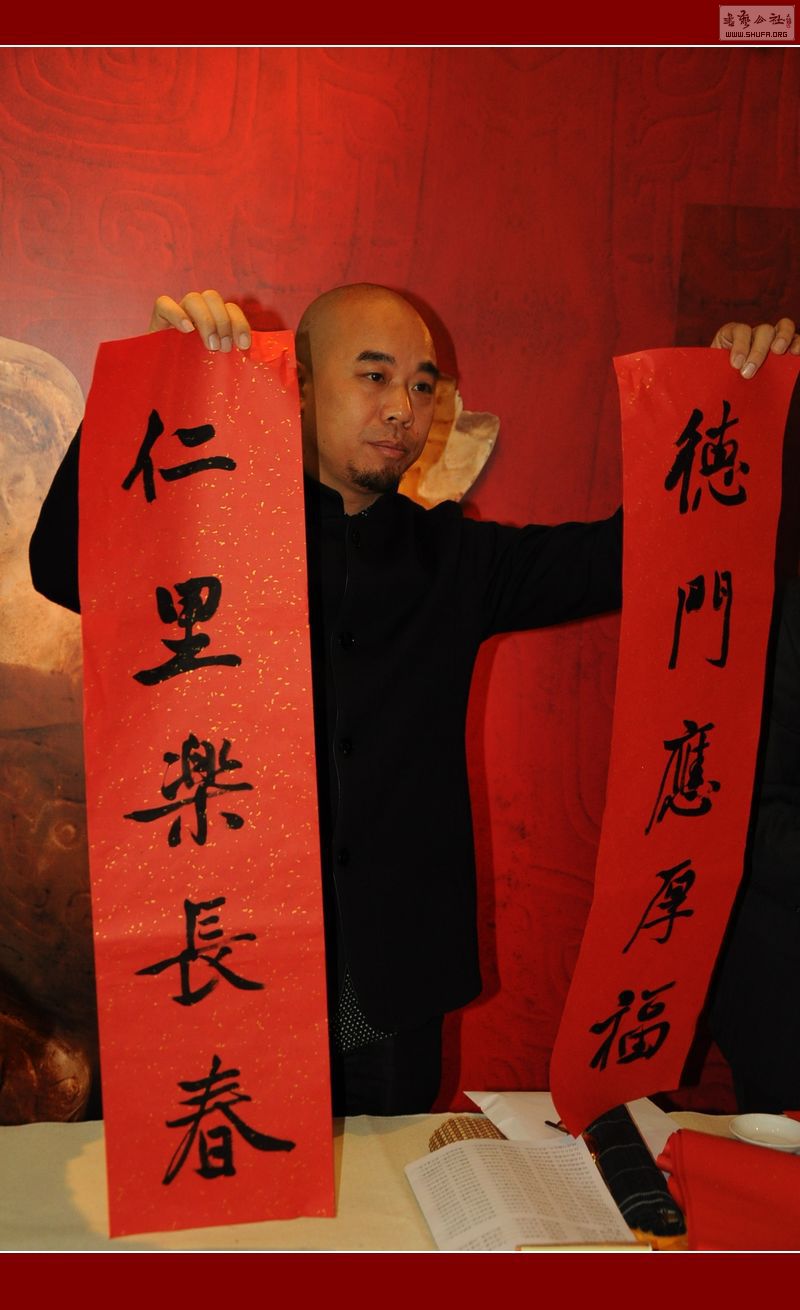 德門應厚福
仁里楽長春
書藝公社
WWW.SHUFA.ORG